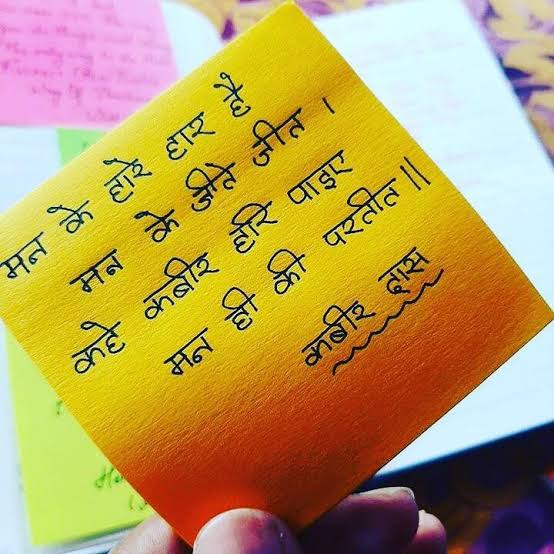 मन के हारे हार है
मन के जीते जीत ।
कहे कबीर हरि पाइए
मन ही की परतीत ॥
कबीर दास